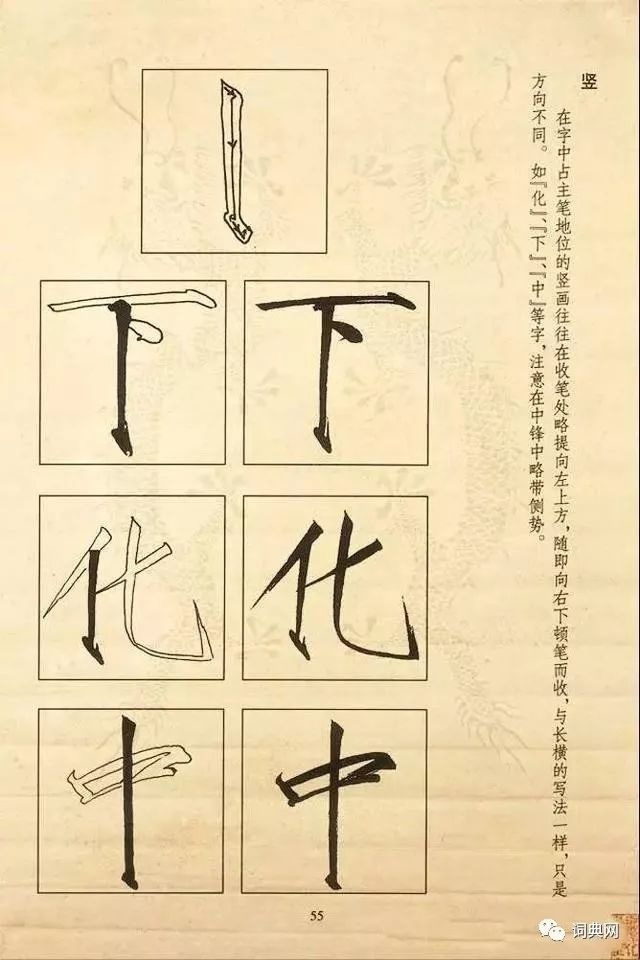 竖
在字中占主笔地位的竖画往往在收笔处略提向左上方，随即向右下顿笔而收，与长横的写法一样，只是
方向不同。如『化』、『下』、『中』等字，注意在中锋中略带侧势。
下 下
化 化
中 中
55
词典网